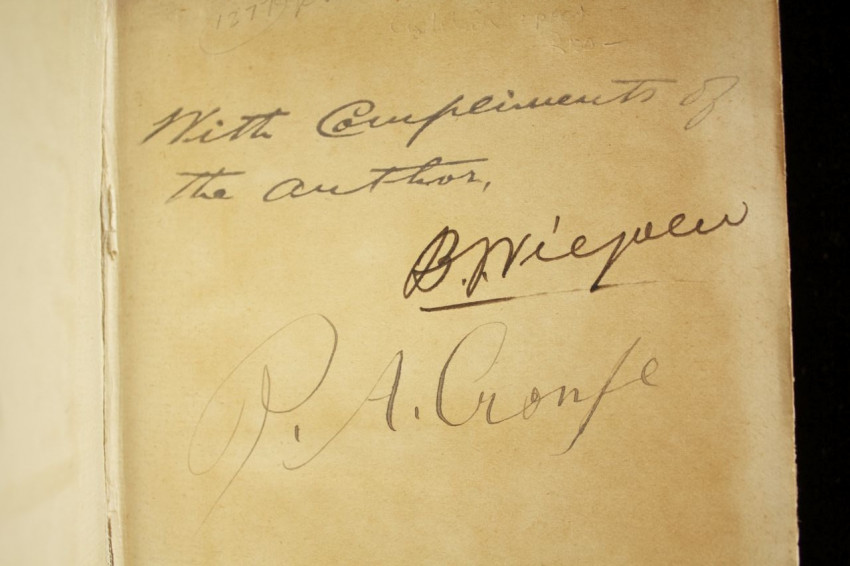 With Compliments of
the author,
B.J. Viljoen
P. A. Cronje